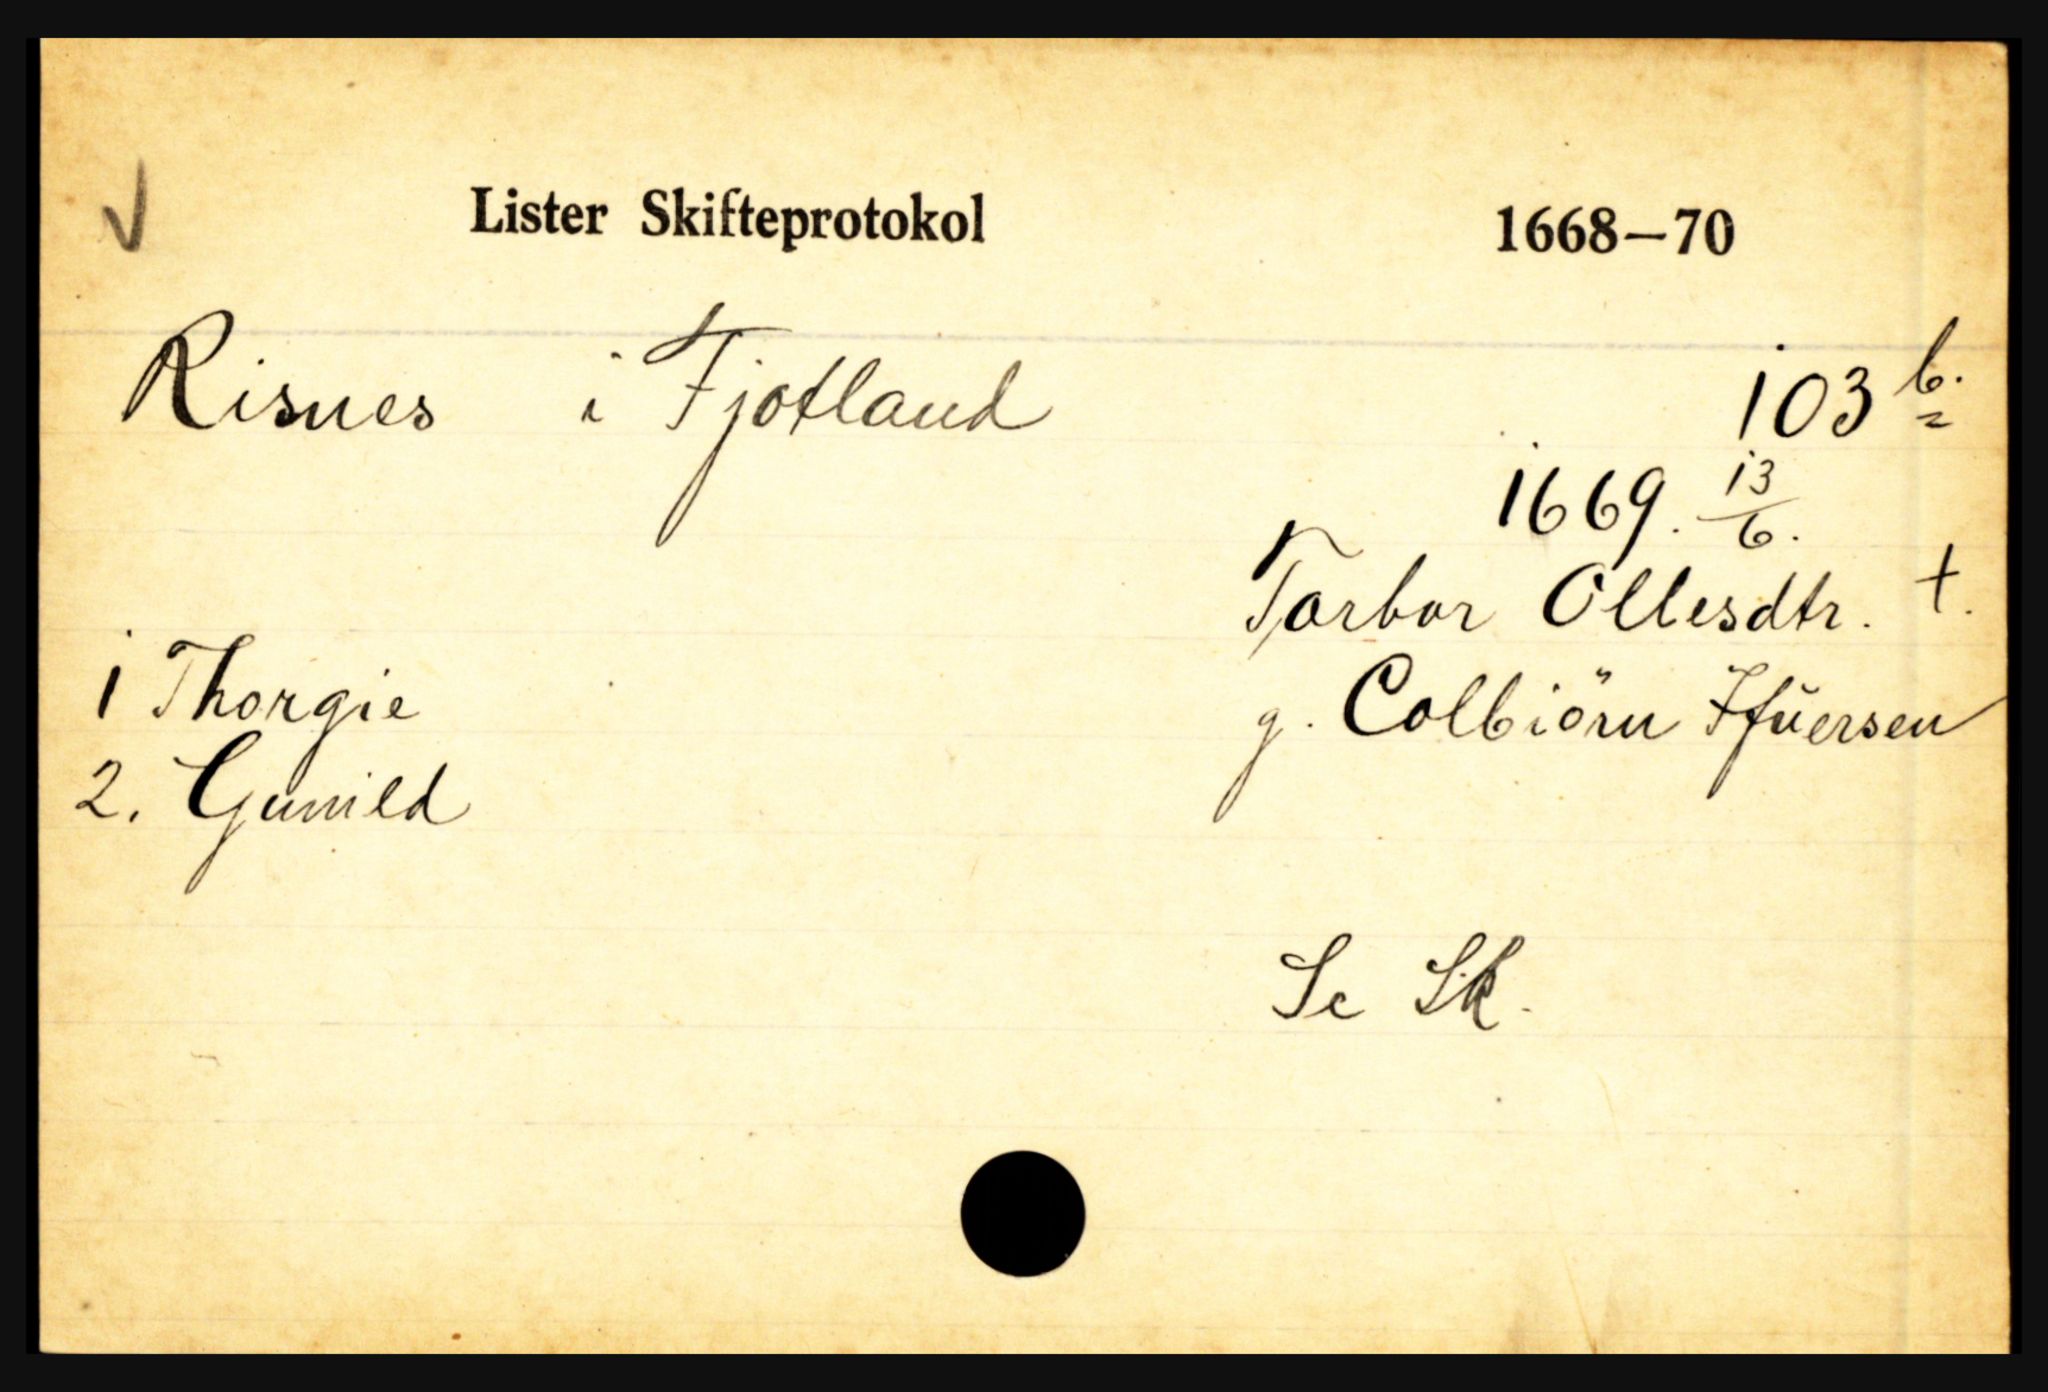 ✓ Lister Skifteprotokol 1668—70
Risnes i Fjotland 103 b.
1669. 13/6.
Torbor Ollesdtr. †.
1 Thorgie g. Colbiörn Ifuersen
2. Gunild
Se Sk.